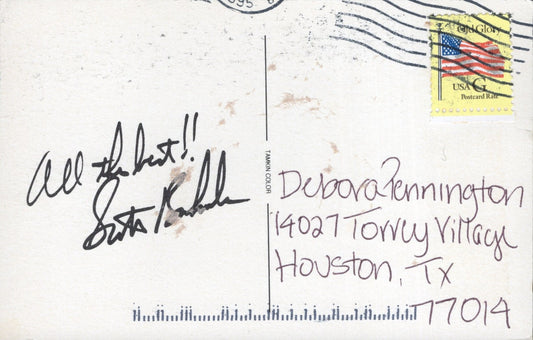 995
Old Glory
USA G
Postcard Rate
All the best!!
TAMKIN COLOR
Debora Pennington
14027 Torrey Village
Houston, TX
77014